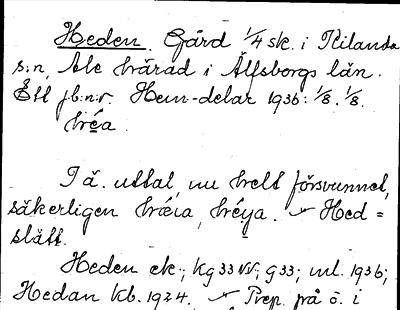 Heden. Gård 1/4 sk. i Kilanda
s:n, Ale härad i Älfsborgs län.
Ett jb:n:r. Hem-delar 1936: 1/8. 1/8.
héa.
I ä. uttal, nu helt försvunnet,
säkerligen héya. Hed =
slätt.
Heden ek.; kg 33 NV; g 33; ml. 1936;
Hedan kb. 1924. Prep. på ö. i